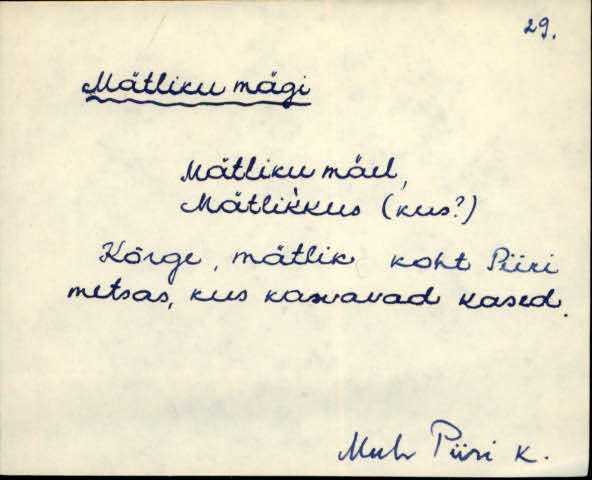 29.
Mätliku mägi
Mätliku mäel,
Mätlik̀kus (kus?)
Kõrge, mätlik koht Piiri
metsas, kus kasvavad kased.
Muh Piiri k.